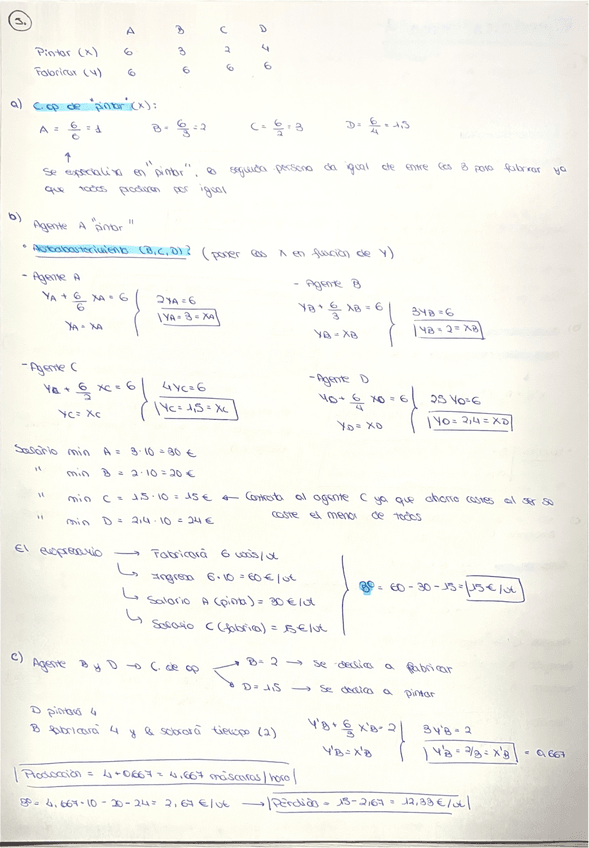 3.
A B C D
Pintar (X) 6 3 2 4
Fabricar (Y) 6 6 6 6
a) C. op de "pintar" (X):
A = 6/6 = 1 B = 6/3 = 2 C = 6/2 = 3 D = 6/4 = 1,5
↑
Se especializa en "pintar", la segunda persona da igual de entre los 3 para fabricar ya
que todos producen por igual
b) Agente A "pintar"
• Autoabastecimiento (B, C, D)? (poner las X en función de Y)
- Agente A - Agente B
YA + 6/6 XA = 6 2YA = 6 YB + 6/3 XB = 6 3YB = 6
YA = XA YA = 3 = XA YB = XB YB = 2 = XB
- Agente C - Agente D
YC + 6/2 XC = 6 4YC = 6 YD + 6/4 XD = 6 2,5 YD = 6
YC = XC YC = 1,5 = XC YD = XD YD = 2,4 = XD
Salario min A = 3·10 = 30 €
" min B = 2·10 = 20 €
" min C = 1,5·10 = 15 € ← Contrata al agente C ya que ahorra costes al ser su
coste el menor de todos
" min D = 2,4·10 = 24 €
El empresario → Fabricará 6 uds/ut
↳ Ingresa 6·10 = 60 €/ut
Bº = 60 - 30 - 15 = 15 €/ut
↳ Salario A (pinta) = 30 €/ut
↳ Salario C (fabrica) = 15 €/ut
c) Agente B y D → C. de op → B = 2 → Se dedica a fabricar
→ D = 1,5 → Se dedica a pintar
D pintará 4
B fabricará 4 y le sobrará tiempo (2) Y'B + 6/3 X'B = 2 3Y'B = 2
Y'B = X'B Y'B = 2/3 = X'B = 0,667
Producción = 4 + 0,667 = 4,667 máscaras/hora
Bº = 4,667·10 - 20 - 24 = 2,67 €/ut → Pérdida = 15 - 2,67 = 12,33 €/ut